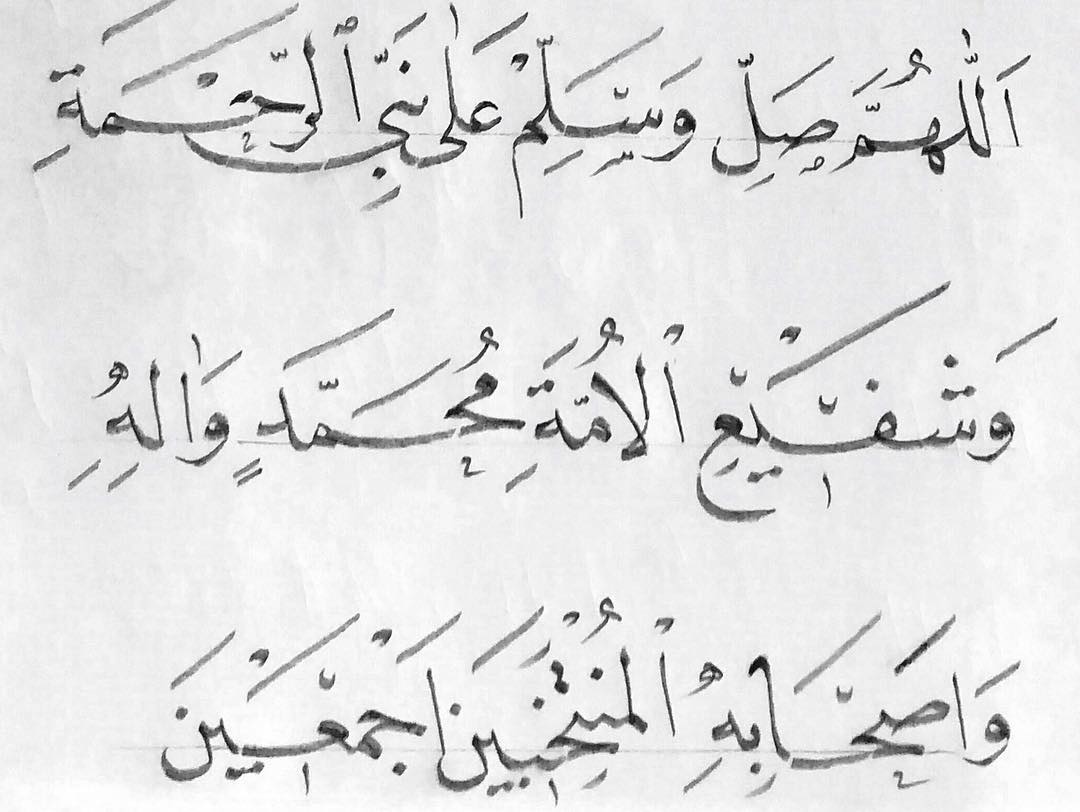 اَللّٰهُمَّ صَلِّ وَسَلِّمْ عَلٰى نَبِيِّ ٱلرَّحْمَةِ
وَشَفِيْعِ ٱلْاُمَّةِ مُحَمَّدٍ وَاٰلِهِ
وَاَصْحَابِهِ ٱلْمُنْتَجَبِيْنَ اَجْمَعِيْنَ